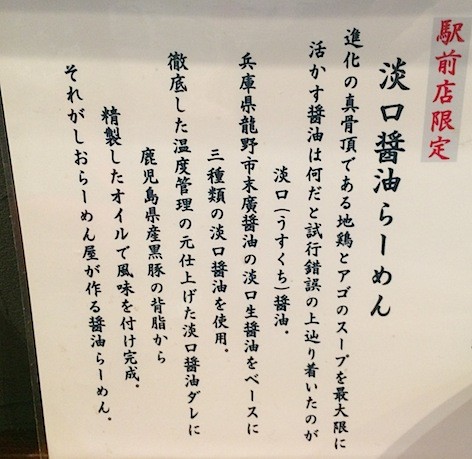 駅前店限定
淡口醤油らーめん
進化の真骨頂である地鶏とアゴのスープを最大限に
活かす醤油は何だと試行錯誤の上辿り着いたのが
淡口(うすくち)醤油。
兵庫県龍野市末廣醤油の淡口生醤油をベースに
三種類の淡口醤油を使用。
徹底した温度管理の元仕上げた淡口醤油ダレに
鹿児島県産黒豚の背脂から
精製したオイルで風味を付け完成。
それがしおらーめん屋が作る醤油らーめん。